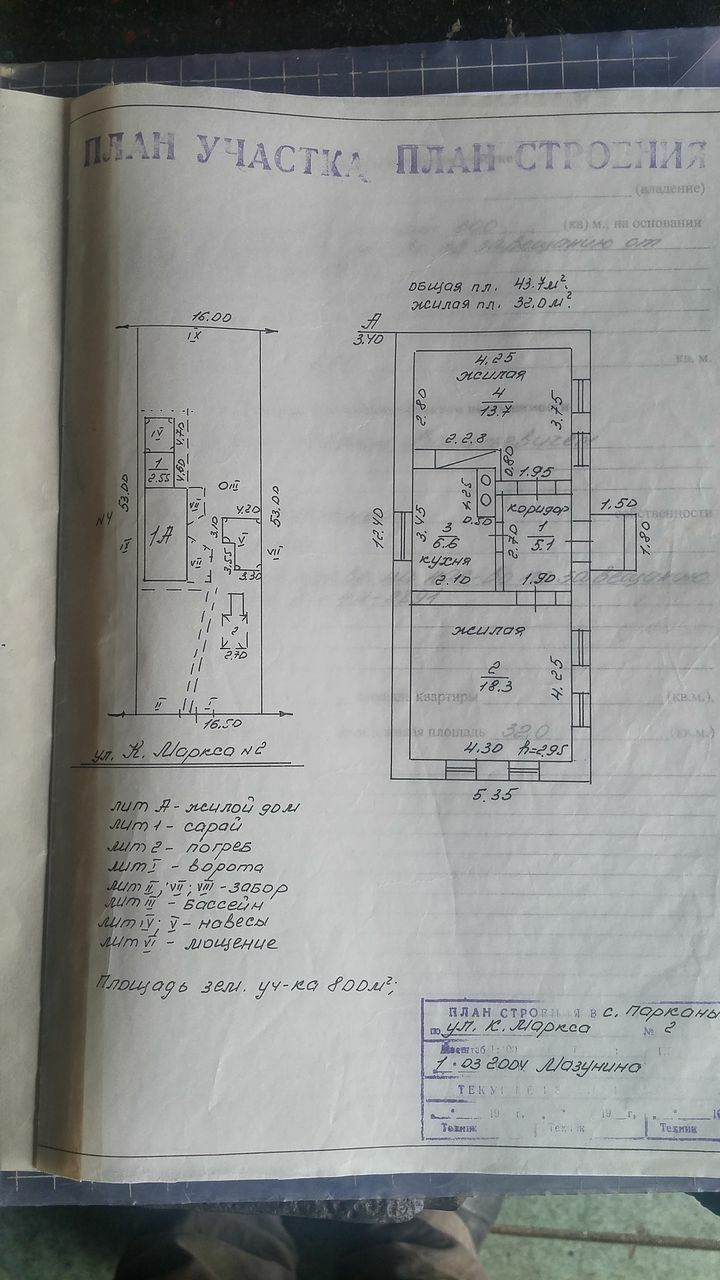 ПЛАН УЧАСТКА ПЛАН СТРОЕНИЯ
(владение)
(кв) м., на основании
завещанию от
общая пл. 43.7м².
жилая пл. 32.0м².
кв. м.
16.00
IX
А
3.40
4.25
жилая
4
13.7
2.80
3.75
2.28
0.80
1.95
IV
4.70
1
2.55
4.60
53.00
N4
IX
1А
VII
VII
III
4.20
3.10
V
3.55
3.30
53.00
VIII
2
2.70
II
I
16.50
12.40
3.45
3
6.6
кухня
2.10
1.25
0.50
2.70
коридор
1
5.1
1.90
1.50
1.80
жилая
2
18.3
4.25
4.30
h=2.95
5.35
квартиры
(кв.м.),
площадь 32,0
(кв.м.)
ул. К. Маркса N2
лит А - жилой дом
лит 1 - сарай
лит 2 - погреб
лит I - ворота
лит II; VII; VIII - забор
лит III - бассейн
лит IV; V - навесы
лит VI - мощение
Площадь зем. уч-ка 800м²;
ПЛАН СТРОЕНИЯ В с. Парканы
по ул. К. Маркса № 2
Масштаб 1:
1.03 2004 Мазунина
19 г, 19 г,
Техник Техник Техник